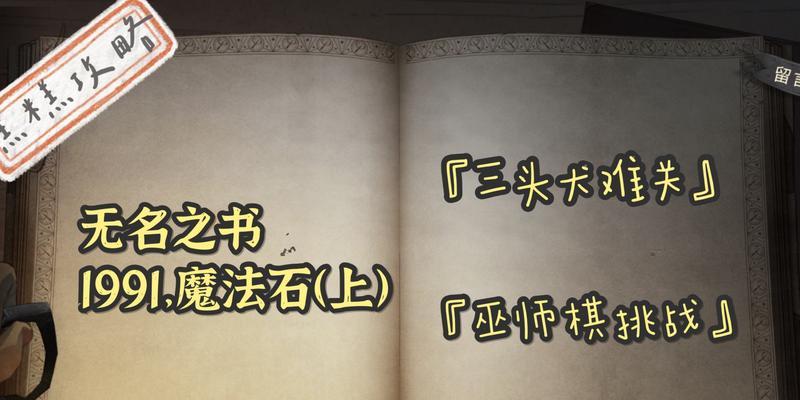 黑糕攻略
留言
无名之书
1991,魔法石(上)
『三头犬难关』
『巫师棋挑战』